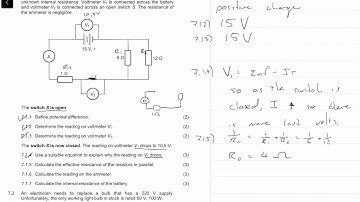 unknown internal resistance. Voltmeter V₁ is connected across the battery
and voltmeter V₂ is connected across an open switch S. The resistance of
the ammeter is negligible.
V₁
15 V, r
A
6 Ω
12 Ω
1 Ω
V₂
The switch S is open.
7.1.1 Define potential difference. (2)
7.1.2 Determine the reading on voltmeter V₁. (2)
7.1.3 Determine the reading on voltmeter V₂. (2)
The switch S is now closed. The reading on voltmeter V₁ drops to 10,5 V.
7.1.4 Use a suitable equation to explain why the reading on V₁ drops. (3)
7.1.5 Calculate the effective resistance of the resistors in parallel. (3)
7.1.6 Calculate the reading on the ammeter. (3)
7.1.7 Calculate the internal resistance of the battery. (3)
7.2 An electrician needs to replace a bulb that has a 220 V supply.
Unfortunately, the only working light bulb in stock is rated 50 V, 100 W.
positive charge
7.1.2) 15 V
7.1.3) 15 V
7.1.4) V₁ = Emf - Ir
so as the switch is
closed, I ↑ so there
is more lost volts.
7.1.5) 1/R = 1/R + 1/R = 1/6 + 1/12
= 4 Ω